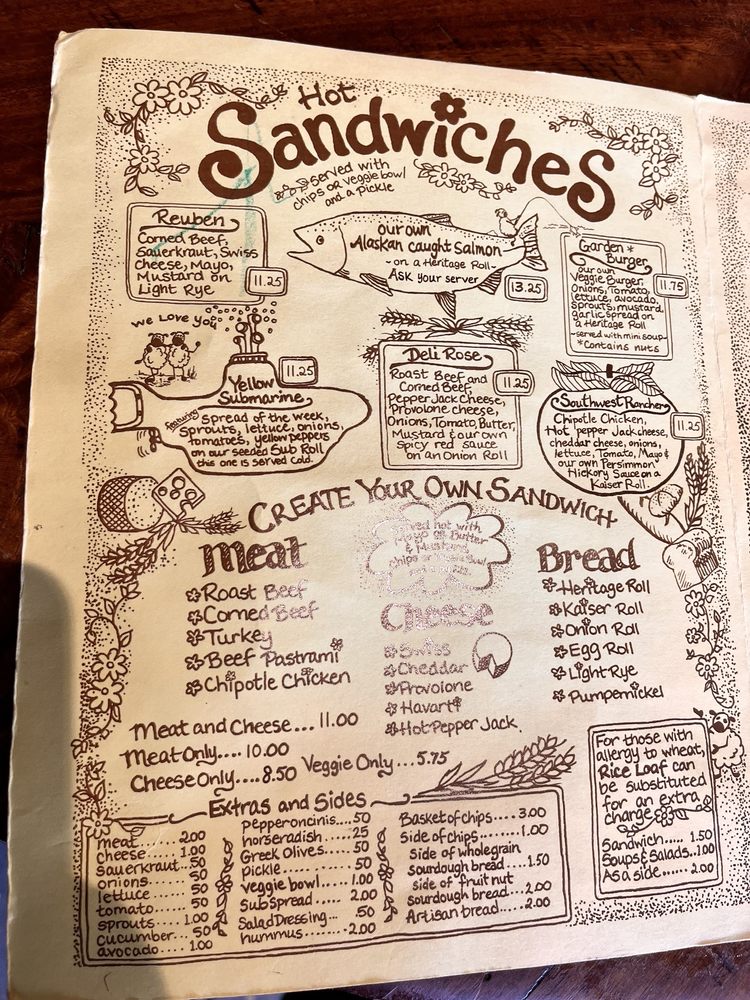 Hot
Sandwiches
served with
chips or veggie bowl
and a pickle
Reuben
Corned Beef,
Sauerkraut, Swiss
cheese, Mayo,
Mustard on
Light Rye
11.25
our own
Alaskan caught Salmon
~ on a Heritage Roll ~
Ask your server
13.25
Garden *
Burger
our own
Veggie Burger,
Onions, Tomato,
lettuce, avocado,
sprouts, mustard,
garlic spread on
a Heritage Roll
~served with mini soup~
*Contains nuts
11.75
we Love You
Yellow
Submarine
11.25
featuring
spread of the week,
sprouts, lettuce, onions,
tomatoes, yellow peppers
on our seeded Sub Roll
this one is served cold.
Deli Rose
Roast Beef and
Corned Beef,
Pepper Jack Cheese,
Provolone cheese,
Onions, Tomato, Butter,
Mustard & our own
spicy red sauce
on an Onion Roll
11.25
Southwest Rancher
Chipotle Chicken,
Hot pepper Jack cheese,
cheddar cheese, onions,
lettuce, Tomato, Mayo &
our own Persimmon
Hickory Sauce on a
Kaiser Roll.
11.25
Create Your Own Sandwich
Served hot with
Mayo or Butter
& Mustard
chips or Veggie Bowl
and a pickle
Meat
Roast Beef
Corned Beef
Turkey
Beef Pastrami
Chipotle Chicken
Cheese
Swiss
Cheddar
Provolone
Havarti
Hot Pepper Jack.
Bread
Heritage Roll
Kaiser Roll
Onion Roll
Egg Roll
Light Rye
Pumpernickel
Meat and Cheese... 11.00
Meat Only.... 10.00
Cheese Only.... 8.50
Veggie Only... 5.75
Extras and Sides
meat....... 2.00
cheese.... 1.00
sauerkraut.. .50
onions..... .50
lettuce..... .50
tomato..... .50
sprouts.... 1.00
cucumber... .50
avocado.... 1.00
pepperoncinis.... .50
horseradish..... .25
Greek Olives..... .50
pickle........ .50
veggie bowl.... 1.00
sub spread..... 2.00
Salad Dressing... .50
hummus....... 2.00
Basket of chips.... 3.00
side of chips....... 1.00
side of whole grain
sourdough bread.... 1.50
side of fruit nut
sourdough bread... 2.00
Artisan bread.... 2.00
For those with
allergy to wheat,
Rice Loaf can
be substituted
for an extra
charge
Sandwich..... 1.50
Soups & Salads.. 1.00
As a side...... 2.00